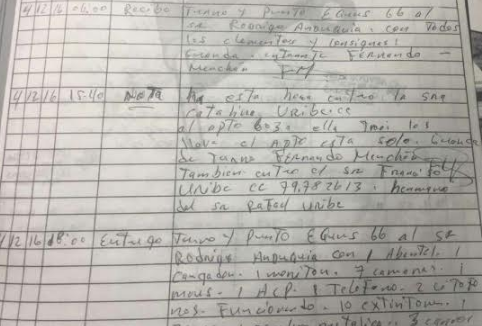 4 12 16 06:00 Recibo Turno y Punto Equus 66 al
sr. Rodrigo Anduquia. con todos
los elementos y consignas.
Guarda. entrante Fernando -
Menchan
4 12 16 15:40 Nota A esta hora entro la sra
Catalina Uribe cc
al apto 603. ella trai las
llave el apto esta solo. Guarda
de Turno Fernando Menchan
Tambien entro el sr Francisco
Uribe cc 79.782613. hermano
del sr Rafael Uribe
4 12 16 18:00 Entrego Turno y Punto Equus 66 al sr
Rodrigo Anduquia con 1 Abantel. 1
Cargador. 1 monitor. 7 camaras. 1
mous. 1 HCP. 1 Telefono. 2 citofo
nos. Funcionando. 10 extintores. 1
3